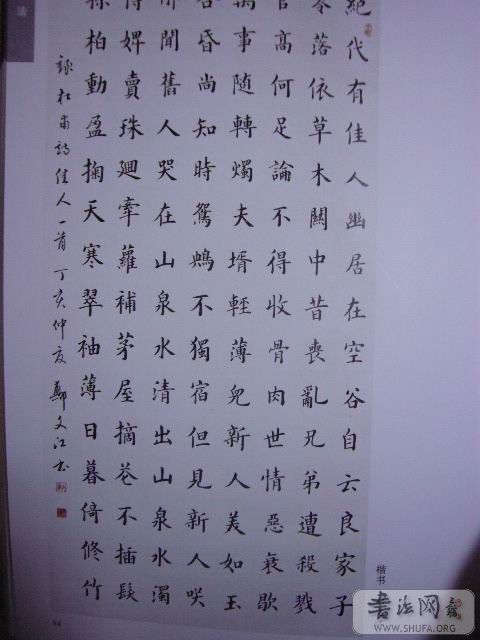 絕代有佳人幽居在空谷自云良家子
零落依草木關中昔喪亂兄弟遭殺戮
官高何足論不得收骨肉世情惡衰歇
萬事随轉燭夫壻輕薄兒新人美如玉
合昏尚知時鴛鴦不獨宿但見新人咲
那聞舊人哭在山泉水清出山泉水濁
侍婢賣珠迴牽蘿補茅屋摘花不插髮
采柏動盈掬天寒翠袖薄日暮倚修竹
録杜甫詩佳人一首丁亥仲夏鄭文江书
楷书
书法网
WWW.SHUFA.ORG